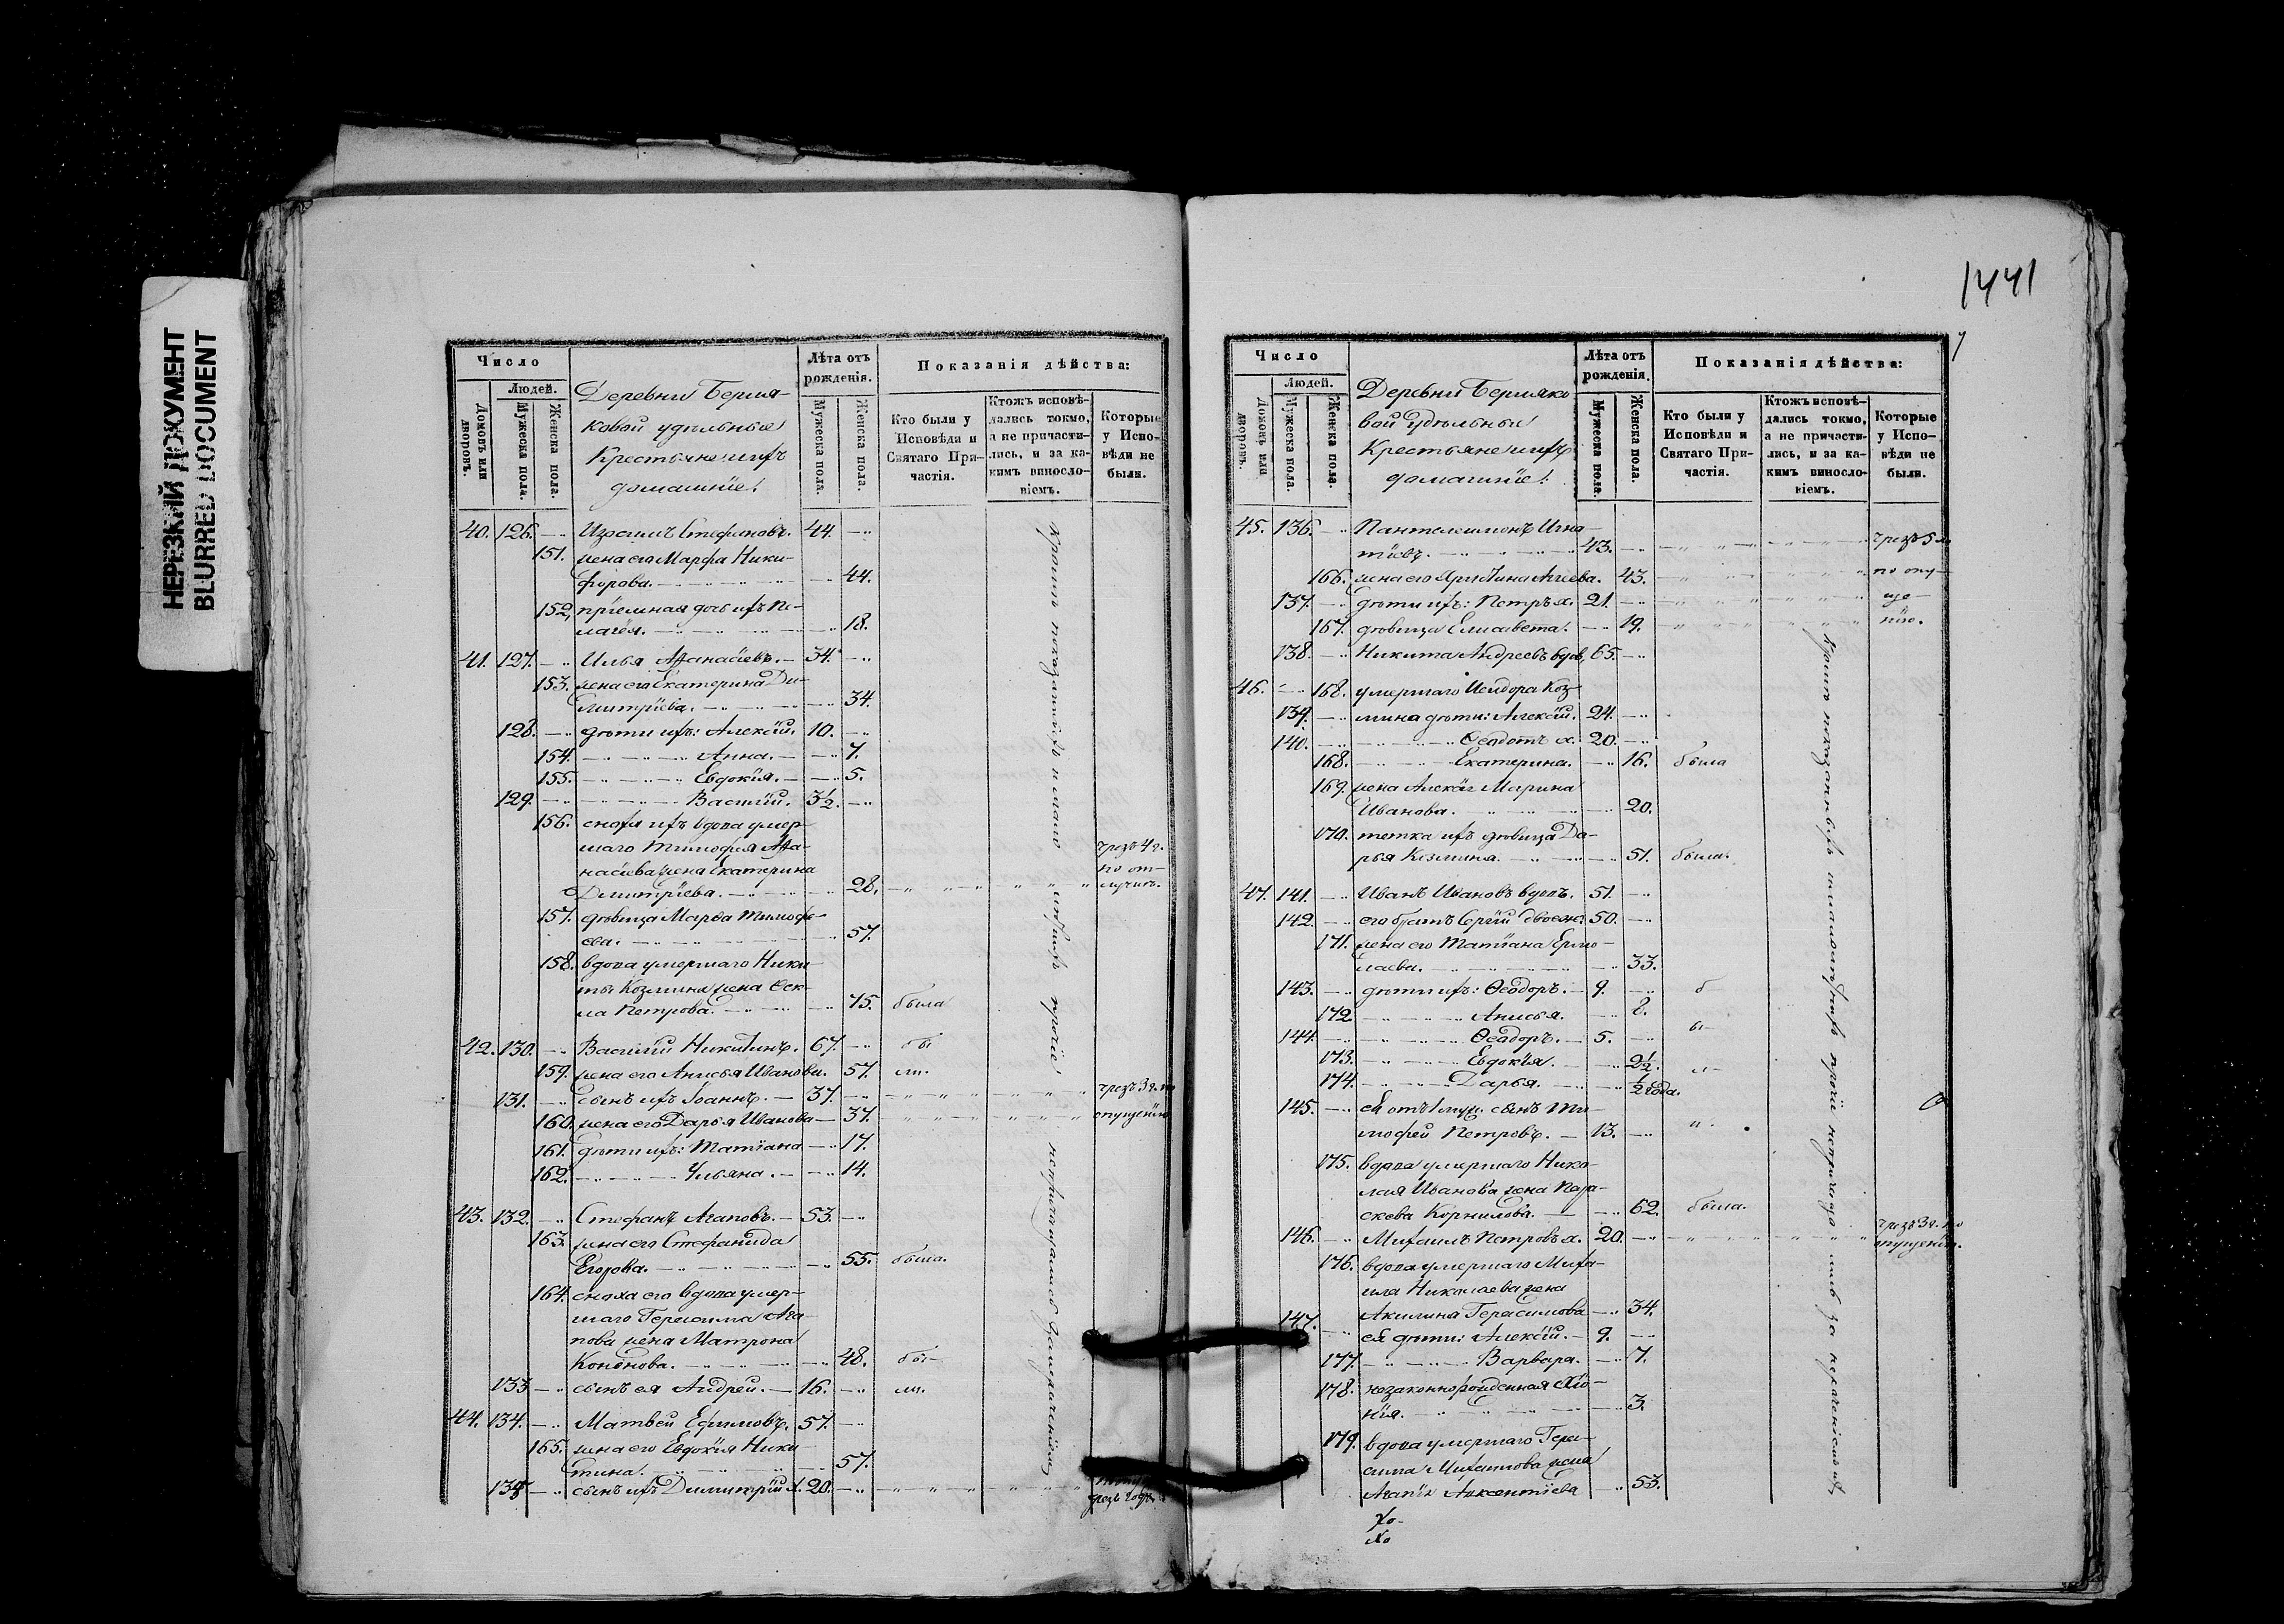 НЕРЕЗКИЙ ДОКУМЕНТ
BLURRED DOCUMENT
Число
Людей.
Домовъ или дворовъ.
Мужеска пола.
Женска пола.
Деревни Бермя-
ковой удѣльные
Крестьяне и ихъ
домашніе:
Лѣта отъ рожденія.
Мужеска пола.
Женска пола.
Показанія дѣйства:
Кто были у Исповѣди и Святаго Причастія.
Ктожъ исповѣдались токмо, а не причастились, и за какимъ винословіемъ.
Которые у Исповѣди не были.
40. 126. Изосимъ Стефановъ. 44.
151. жена его Марфа Ники-
форова. 44.
152. пріемная дочь ихъ Пе-
лагея. 18.
41. 127. Илья Афанасіевъ. 34.
153. жена его Екатерина Ди-
митріева. 34.
128. дѣти ихъ: Алексій. 10.
154. Анна. 7.
155. Евдокія. 5.
129. Василій. 3½.
156. сноха ихъ вдова умер-
шаго Тимофея Афа-
насіева жена Екатерина
Димитріева. 28. чрезъ 4 г. по от-
лучкѣ.
157. дѣвица Марѳа Тимофе-
ева. 57.
158. вдова умершаго Ники-
ты Козмина жена Ѳек-
ла Петрова. 75. была
42. 130. Василій Никитинъ. 67. бы
159. жена его Анисья Иванова. 57. ли.
131. сынъ ихъ Іоаннъ. 37. чрезъ 3 г. по
160. жена его Дарья Иванова 37. опущенію
161. дѣти ихъ: Татіана 17.
162. Ульяна. 14.
43. 132. Стефанъ Агаповъ. 53.
163. жена его Стефанида
Егорова. 55. была.
164. сноха его вдова умер-
шаго Герасима Ага-
пова жена Матрона
Кононова. 48. бы-
133 сынъ ея Андрей. 16. ли.
44. 134. Матвей Ефимовъ. 57.
165. жена его Евдокія Ники-
тина. 57.
135 сынъ ихъ Димитрій х. 20.
кромѣ показанныхъ и малолѣтнихъ прочіе непричащались за нераченіемъ
1441
Число
Людей.
Домовъ или дворовъ.
Мужеска пола.
Женска пола.
Деревни Бермяко
вой удѣльные
Крестьяне и ихъ
домашніе:
Лѣта отъ рожденія.
Мужеска пола.
Женска пола.
Показанія дѣйства:
Кто были у Исповѣди и Святаго Причастія.
Ктожъ исповѣдались токмо, а не причастились, и за какимъ винословіемъ.
Которые у Исповѣди не были.
45. 136. Пантелеимонъ Игна-
тіевъ. 43. чрезъ 5 л.
166. жена его Христина Агеева. 43. по опу-
137. дѣти ихъ: Петръ х. 21. ще-
167. дѣвица Елисавета. 19. нію.
138. Никита Андреевъ вдов. 65.
46. 168. умершаго Исидора Коз-
139. мина дѣти: Алексій. 24.
140. Ѳеодотъ х. 20.
168. Екатерина. 16. была
169. жена Алексія Марина
Иванова. 20.
170. тетка ихъ дѣвица Да-
рья Козмина. 51. была.
47. 141. Иванъ Ивановъ вдовъ. 51.
142. его братъ Сергій двоежен. 50.
171. жена его Татіана Ермо-
лаева. 33.
143. дѣти ихъ: Ѳеодоръ. 9. б
172 Анисья. 8.
144. Ѳеодоръ. 5. ы-
173. Евдокія. 2½. л-
174. Дарья. ½ года.
145. ея отъ 1 муж. сынъ Ти-
мофей Петровъ. 13. и.
175. вдова умершаго Нико-
лая Иванова жена Пара-
скева Корнилова. 62. была.
146. Михаилъ Петровъ х. 20. чрезъ 3 г. по
опущенію.
176. вдова умершаго Миха-
ила Николаева жена
Акилина Герасимова 34.
147. ея дѣти: Алексій. 9.
177. Варвара. 7.
178. незаконнорожденная Хіо-
нія. 3.
179. вдова умершаго Гера-
сима Михаилова жена
Агапія Авксентіева 53.
Хо-
Хо